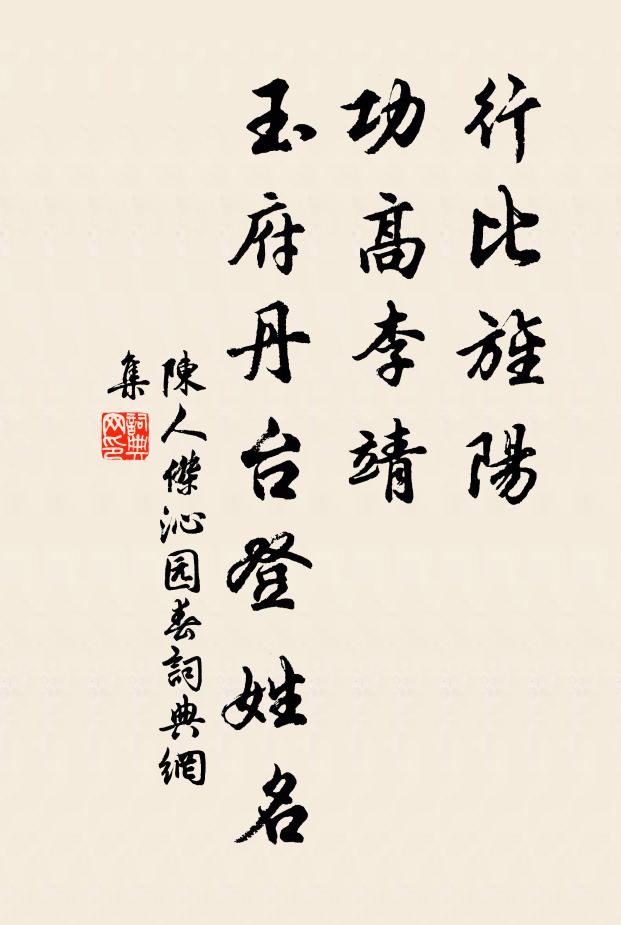 行比旌陽
功高李靖
玉府丹台登姓名
陳人傑沁园春詞典網
集
詞典网印